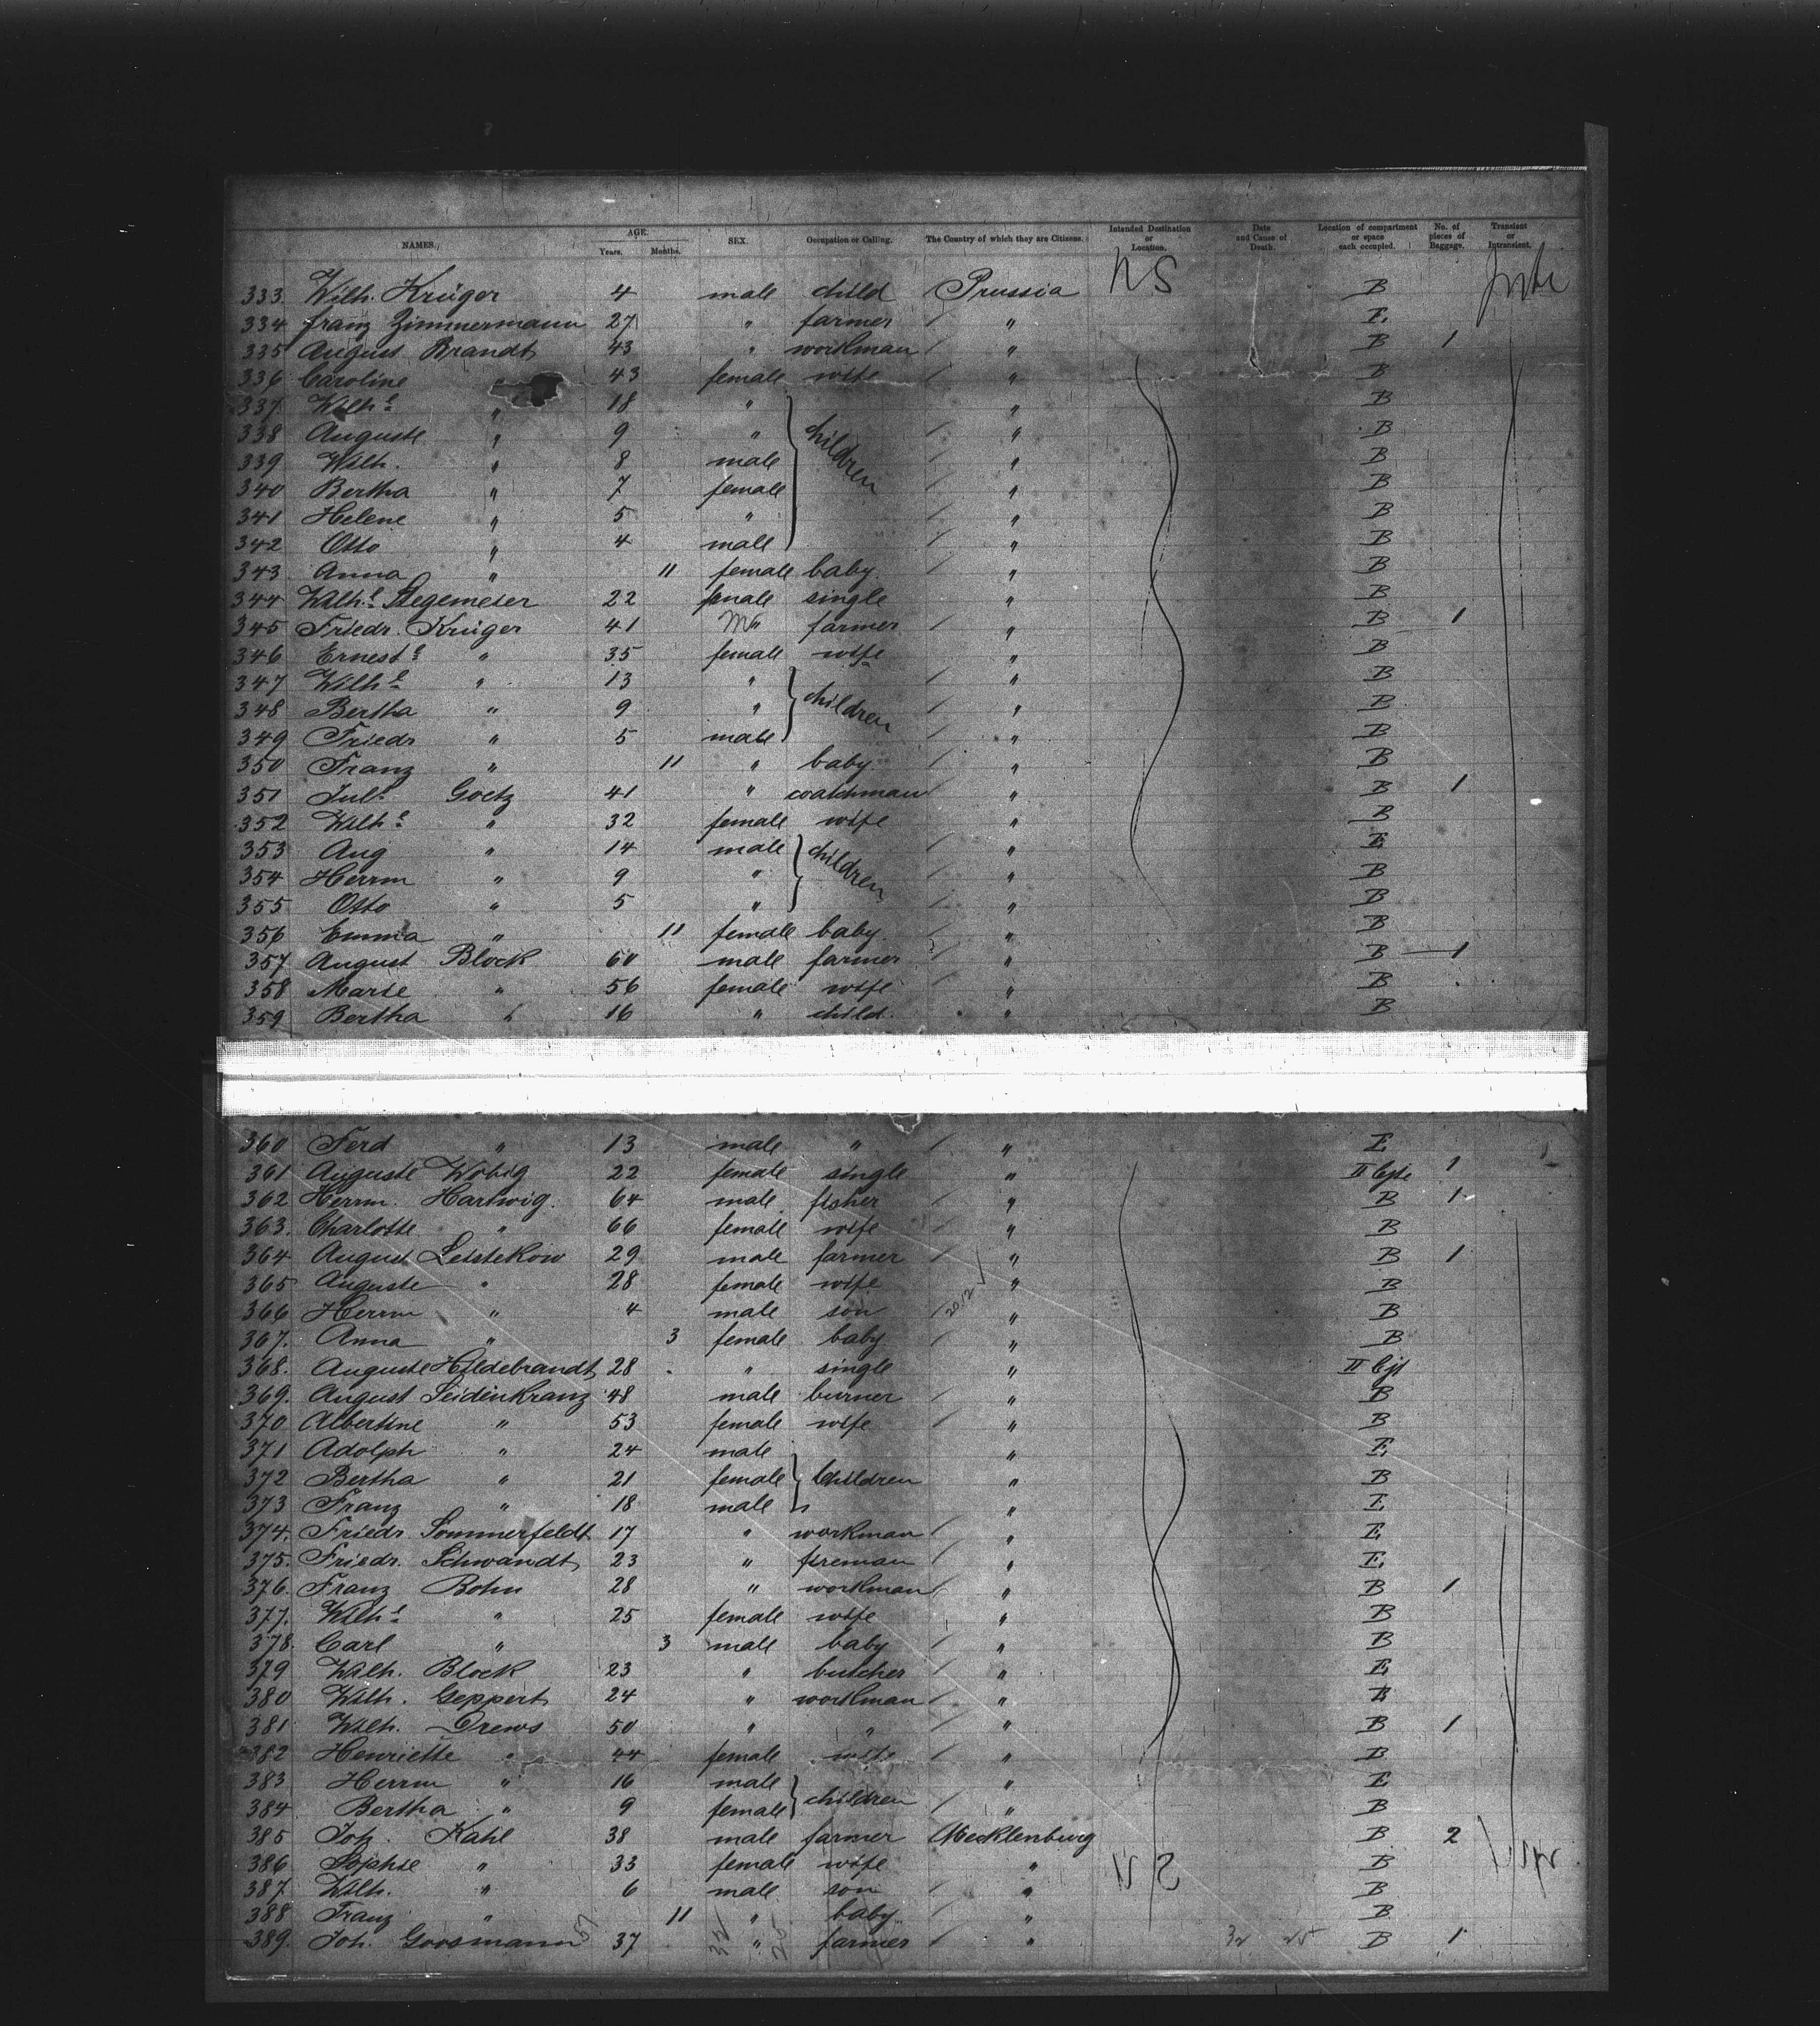 NAMES. AGE. Years. Months. SEX. Occupation or Calling. The Country of which they are Citizens. Intended Destination or Location. Date and Cause of Death. Location of compartment or space each occupied. No. of pieces of Baggage. Transient or Intransient.
333. Wilh. Krüger 4 male child Prussia NS B
334 Franz Zimmermann 27 " farmer " E
335 August Brandt 43 " workman " B 1
336 Caroline 43 female wife " B
337 Wilh.e " 18 " children " B
338 Auguste " 9 " " B
339 Wilh. " 8 male " B
340 Bertha " 7 female " B
341 Helene " 5 " " B
342 Otto " 4 male " B
343 Anna " 11 female baby " B
344 Wilh.e Stegemeier 22 female single " B
345 Friedr. Krüger 41 M " farmer " B 1
346 Ernest.e " 35 female wife " B
347 Wilh.e " 13 " children " B
348 Bertha " 9 " " B
349 Friedr " 5 male " B
350 Franz " 11 " baby " B
351 Jul.s Goetz 41 " coatchman " B 1
352 Wilh.e " 32 female wife " B
353 Aug " 14 male children " E
354 Herrm " 9 " " B
355 Otto " 5 " " B
356 Emma " 11 female baby " B
357 August Block 60 male farmer " B 1
358 Marie " 56 female wife " B
359 Bertha " 16 " child. " B
360 Ferd " 13 male " " E
361 Auguste Wobig 22 female single " II 1
362 Herrm. Hartwig. 64 male fisher " B 1
363. Charlotte " 66 female wife " B
364 August Leistekow 29 male farmer " B 1
365 Auguste " 28 female wife " B
366 Herrm " 4 male son " B
367. Anna " 3 female baby " B
368. Auguste Hildebrandt 28 " single " II
369. August Seidenkranz 48 male burner " B
370 Albertine " 53 female wife " B
371 Adolph " 24 male " E
372 Bertha " 21 female children " B
373 Franz " 18 male " E
374. Friedr. Sommerfeldt 17 " workman " E
375. Friedr. Schwandt 23 " fireman " E
376. Franz Bohn 28 " workman " B 1
377. Wilh.e " 25 female wife " B
378. Carl " 3 male baby " B
379 Wilh. Block 23 " butcher " E
380 Wilh. Geppert 24 " workman "
381 Wilh. Drews 50 " " " B 1
382 Henriette " 44 female wife " B
383 Herrm " 16 male children " E
384 Bertha " 9 female " B
385 Joh. Kahl 38 male farmer Mecklenburg B 2
386 Sophie " 33 female wife " NS B
387 Wilh. " 6 male son " B
388 Franz " 11 " baby " B
389. Joh. Goosmann 37 " farmer " B 1